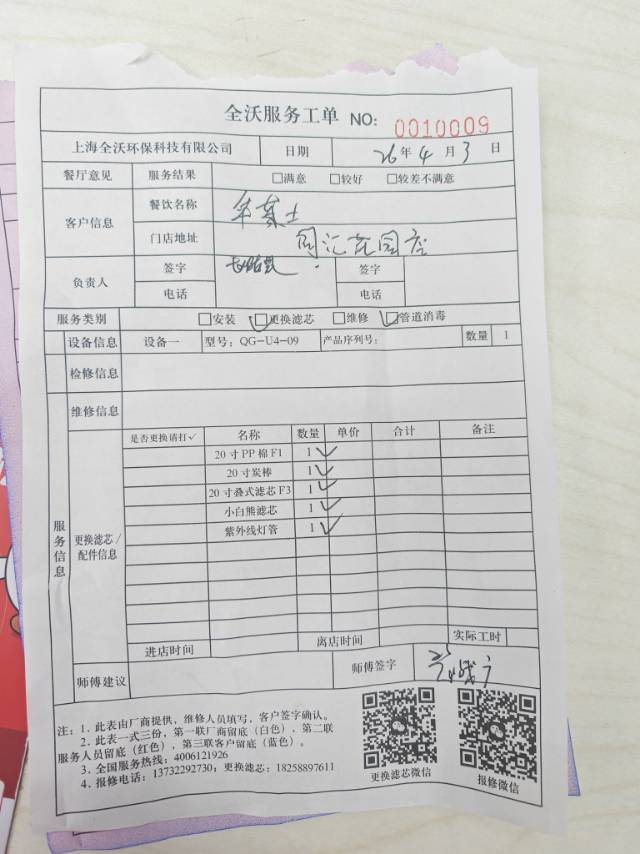 全沃服务工单 NO: 0010009
上海全沃环保科技有限公司 日期 26年4月3日
餐厅意见 服务结果 □满意 □较好 □较差不满意
客户信息 餐饮名称 华莱士
门店地址 汇花园店
负责人 签字 签字
电话 电话
服务类别 □安装 ☑更换滤芯 □维修 ☑管道消毒
设备信息 设备一 型号：QG-U4-09 产品序列号： 数量 1
检修信息
维修信息
服务信息
更换滤芯/配件信息
是否更换请打✓ 名称 数量 单价 合计 备注
20寸PP棉F1 1 ✓
20寸炭棒 1 ✓
20寸叠式滤芯F3 1 ✓
小白熊滤芯 1 ✓
紫外线灯管 1 ✓
进店时间 离店时间 实际工时
师傅建议 师傅签字
注：1．此表由厂商提供，维修人员填写，客户签字确认。
2．此表一式三份，第一联厂商留底（白色），第二联
服务人员留底（红色），第三联客户留底（蓝色）。
3．全国服务热线：4006121926
4．报修电话：13732292730；更换滤芯：18258897611
更换滤芯微信 报修微信